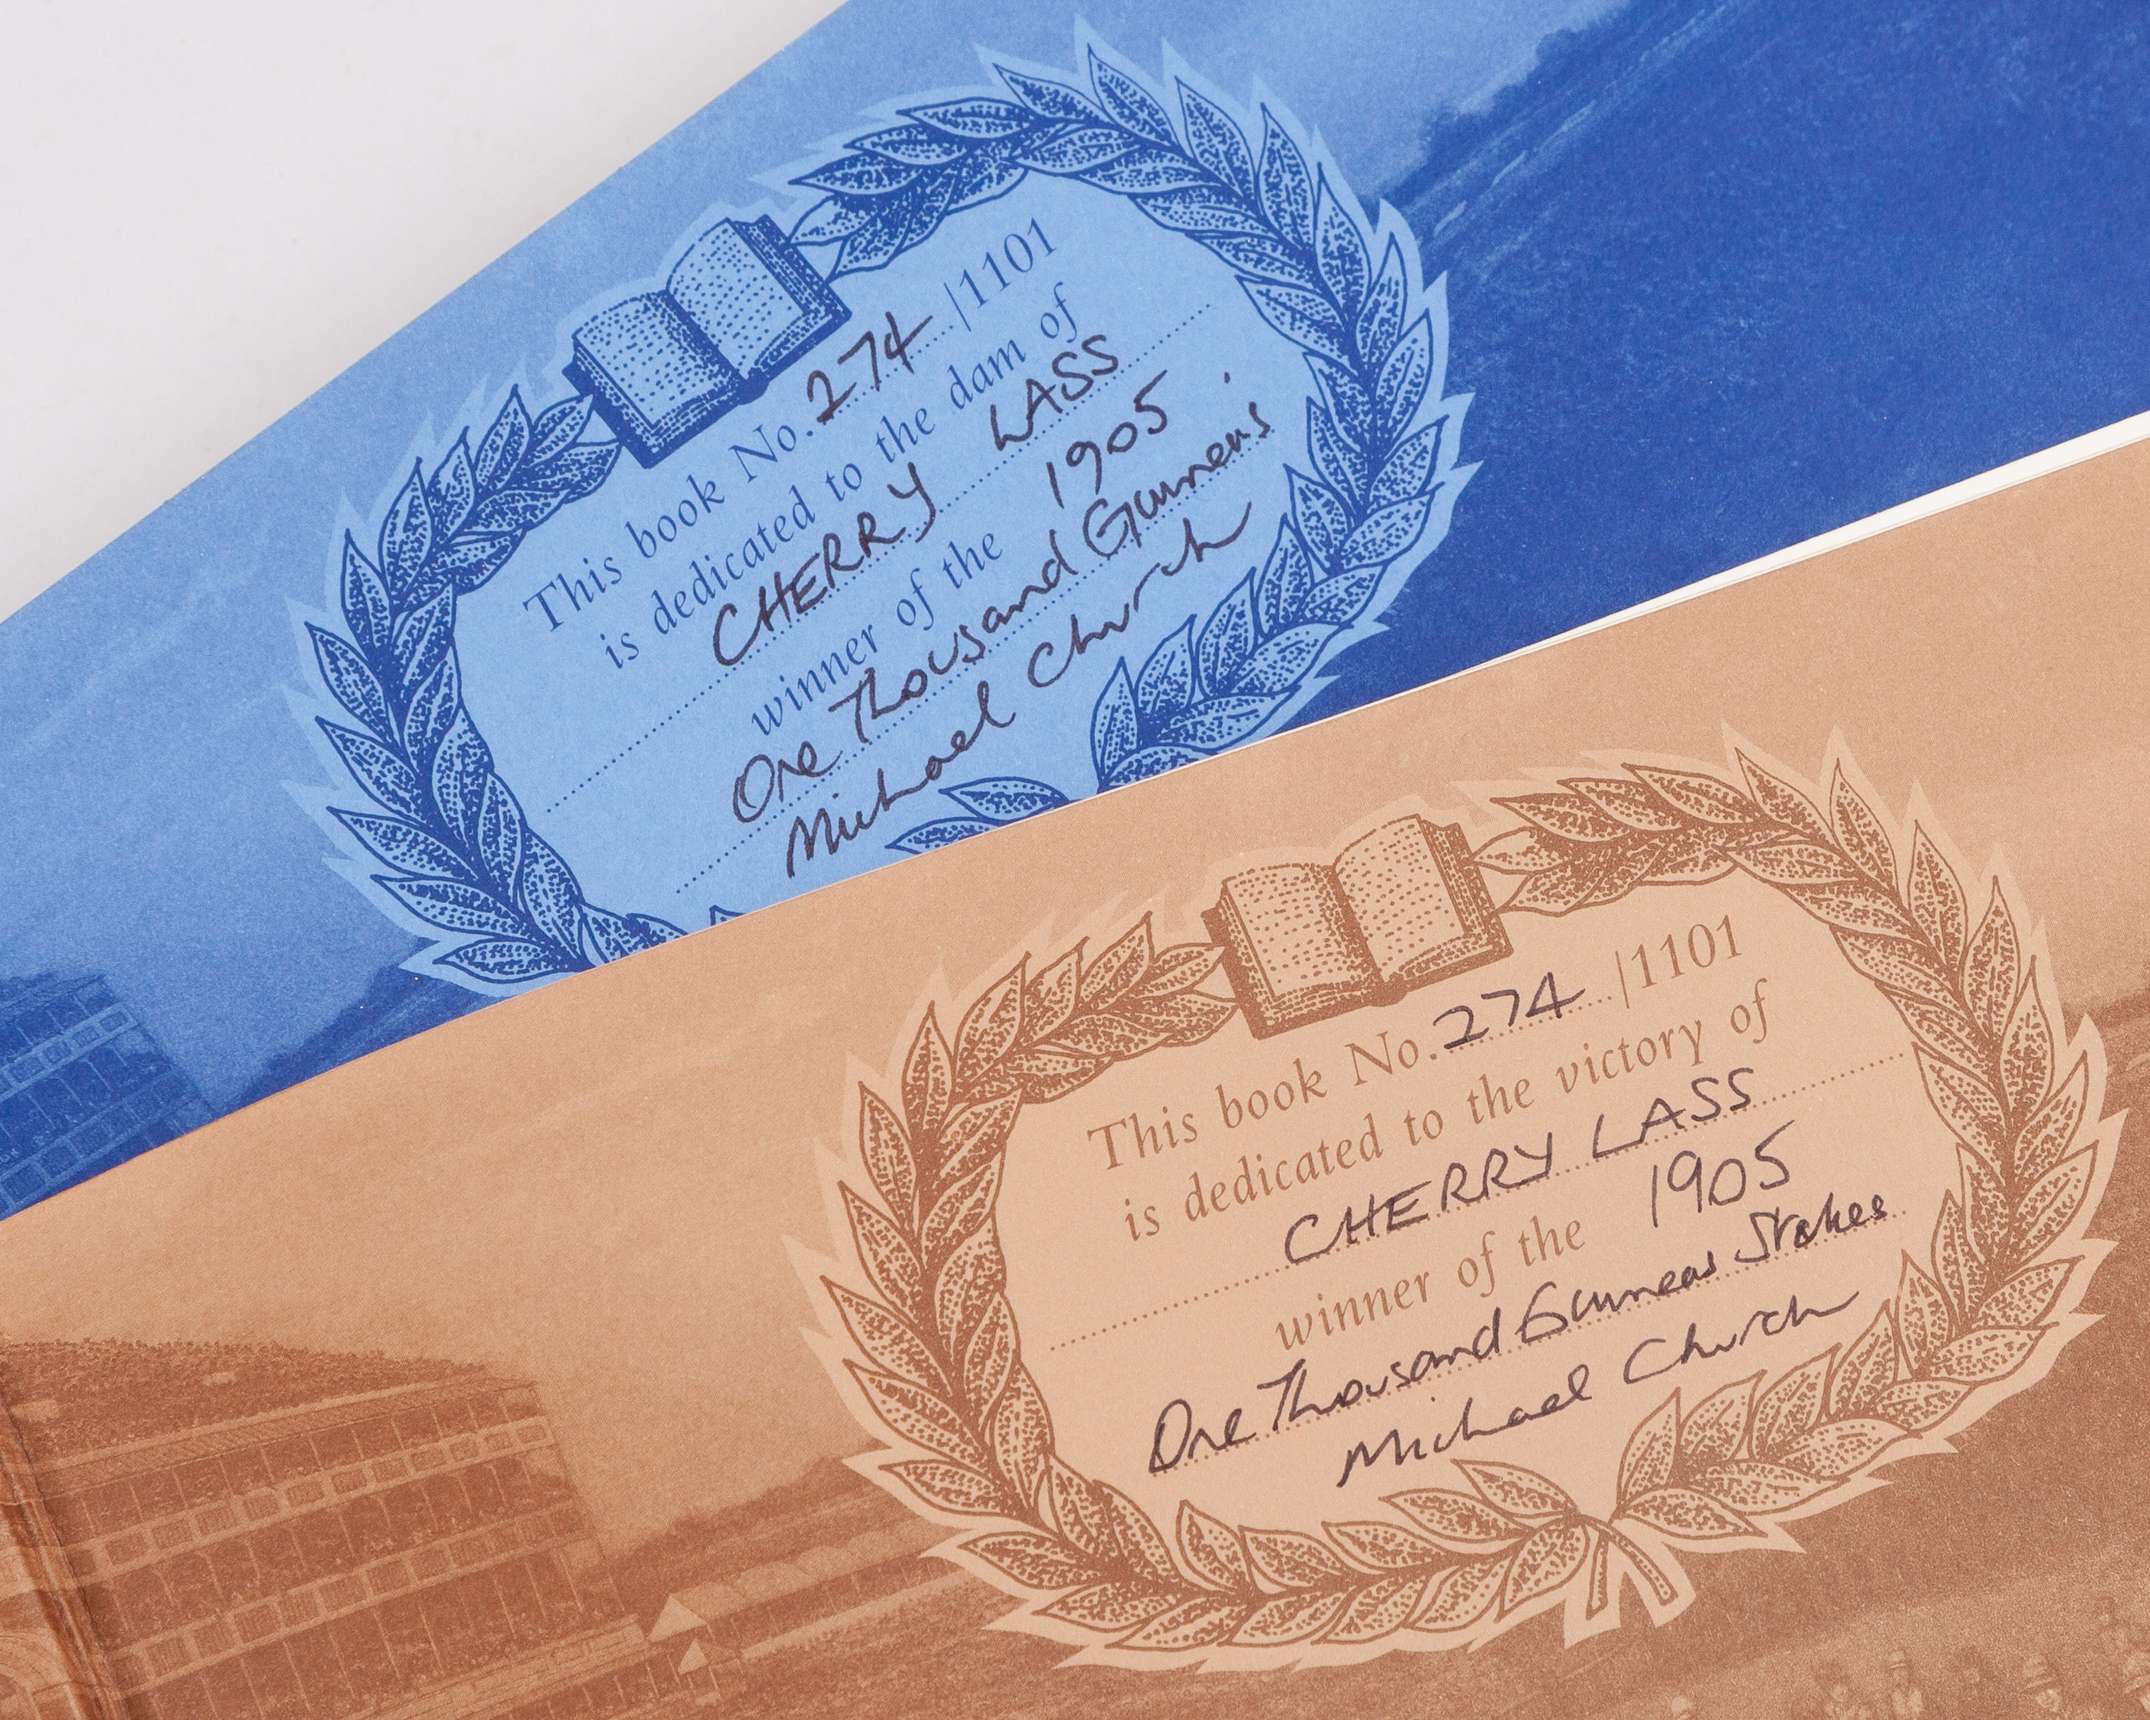 This book No. 274 /1101
is dedicated to the dam of
CHERRY LASS
winner of the 1905
One Thousand Guineas
Michael Church
This book No. 274 /1101
is dedicated to the victory of
CHERRY LASS
winner of the 1905
One Thousand Guineas Stakes
Michael Church